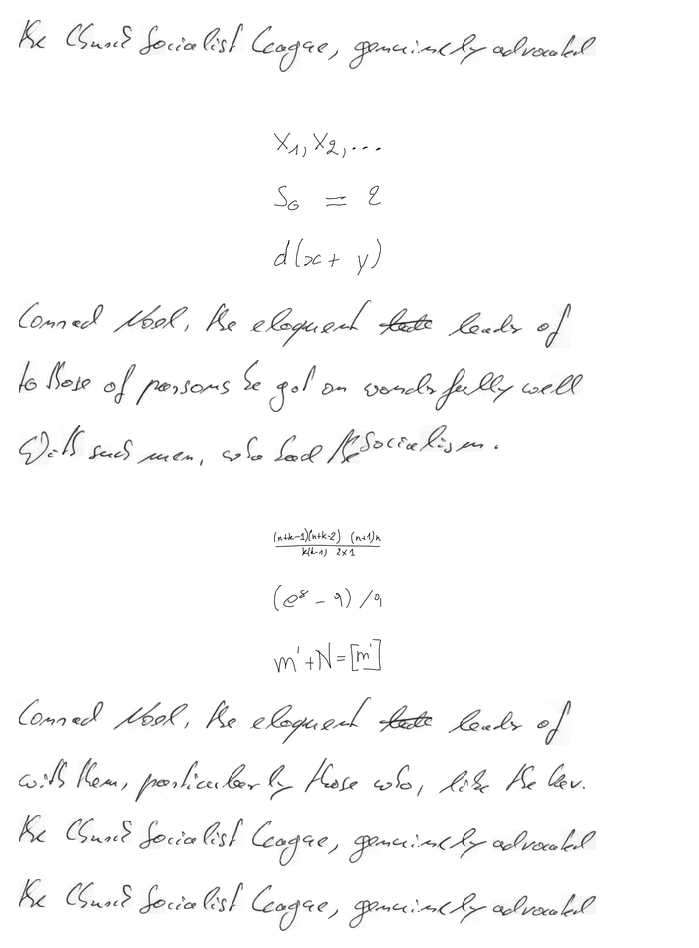 the Church Socialist League, genuinely advocated
X₁, X₂, ...
S₀ = 2
d(x + y)
Conrad Noel, the eloquent leader of
to those of parsons he got on wonderfully well
With such men, who had the Socialism.
(n+k-1)(n+k-2) (n+1)n / k(k-1) 2×1
(e⁸ - 9) / 9
m' + N = [m']
Conrad Noel, the eloquent leader of
with them, particularly those who, like the Rev.
the Church Socialist League, genuinely advocated
the Church Socialist League, genuinely advocated